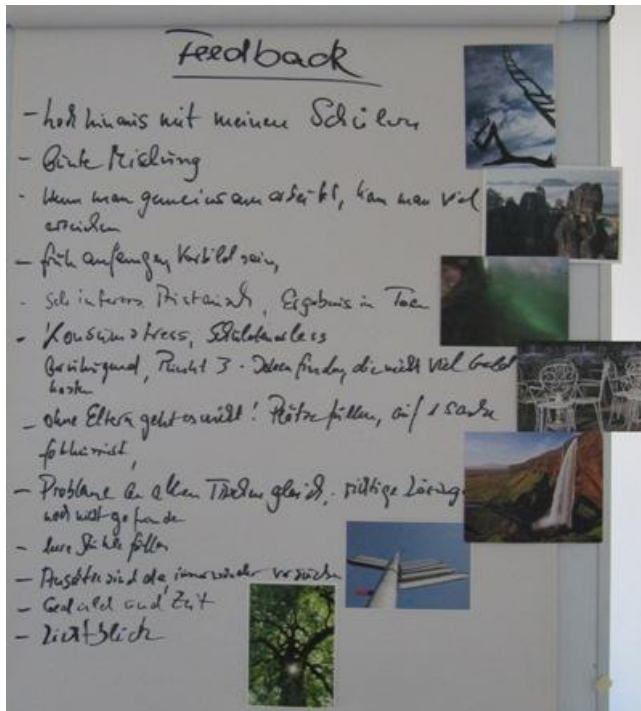 Feedback
- hoch hinaus mit meinen Schülern
- Bunte Mischung
- Wenn man gemeinsam arbeitet, kann man viel
erreichen
- früh anfangen, Vorbild sein,
- sehr Ergebnis in
- Konsumstress,
Beruhigend, Punkt 3 - Ideen finden, die nicht viel Geld
kosten
- ohne Eltern geht es nicht! Plätze füllen, auf 1 Sache
- Probleme an allen Tischen gleich, - richtige Lösung
noch nicht gefunden
- leere Stühle füllen
- Ansätze sind da immer wieder versuchen
- Geduld und Zeit
- Lichtblick